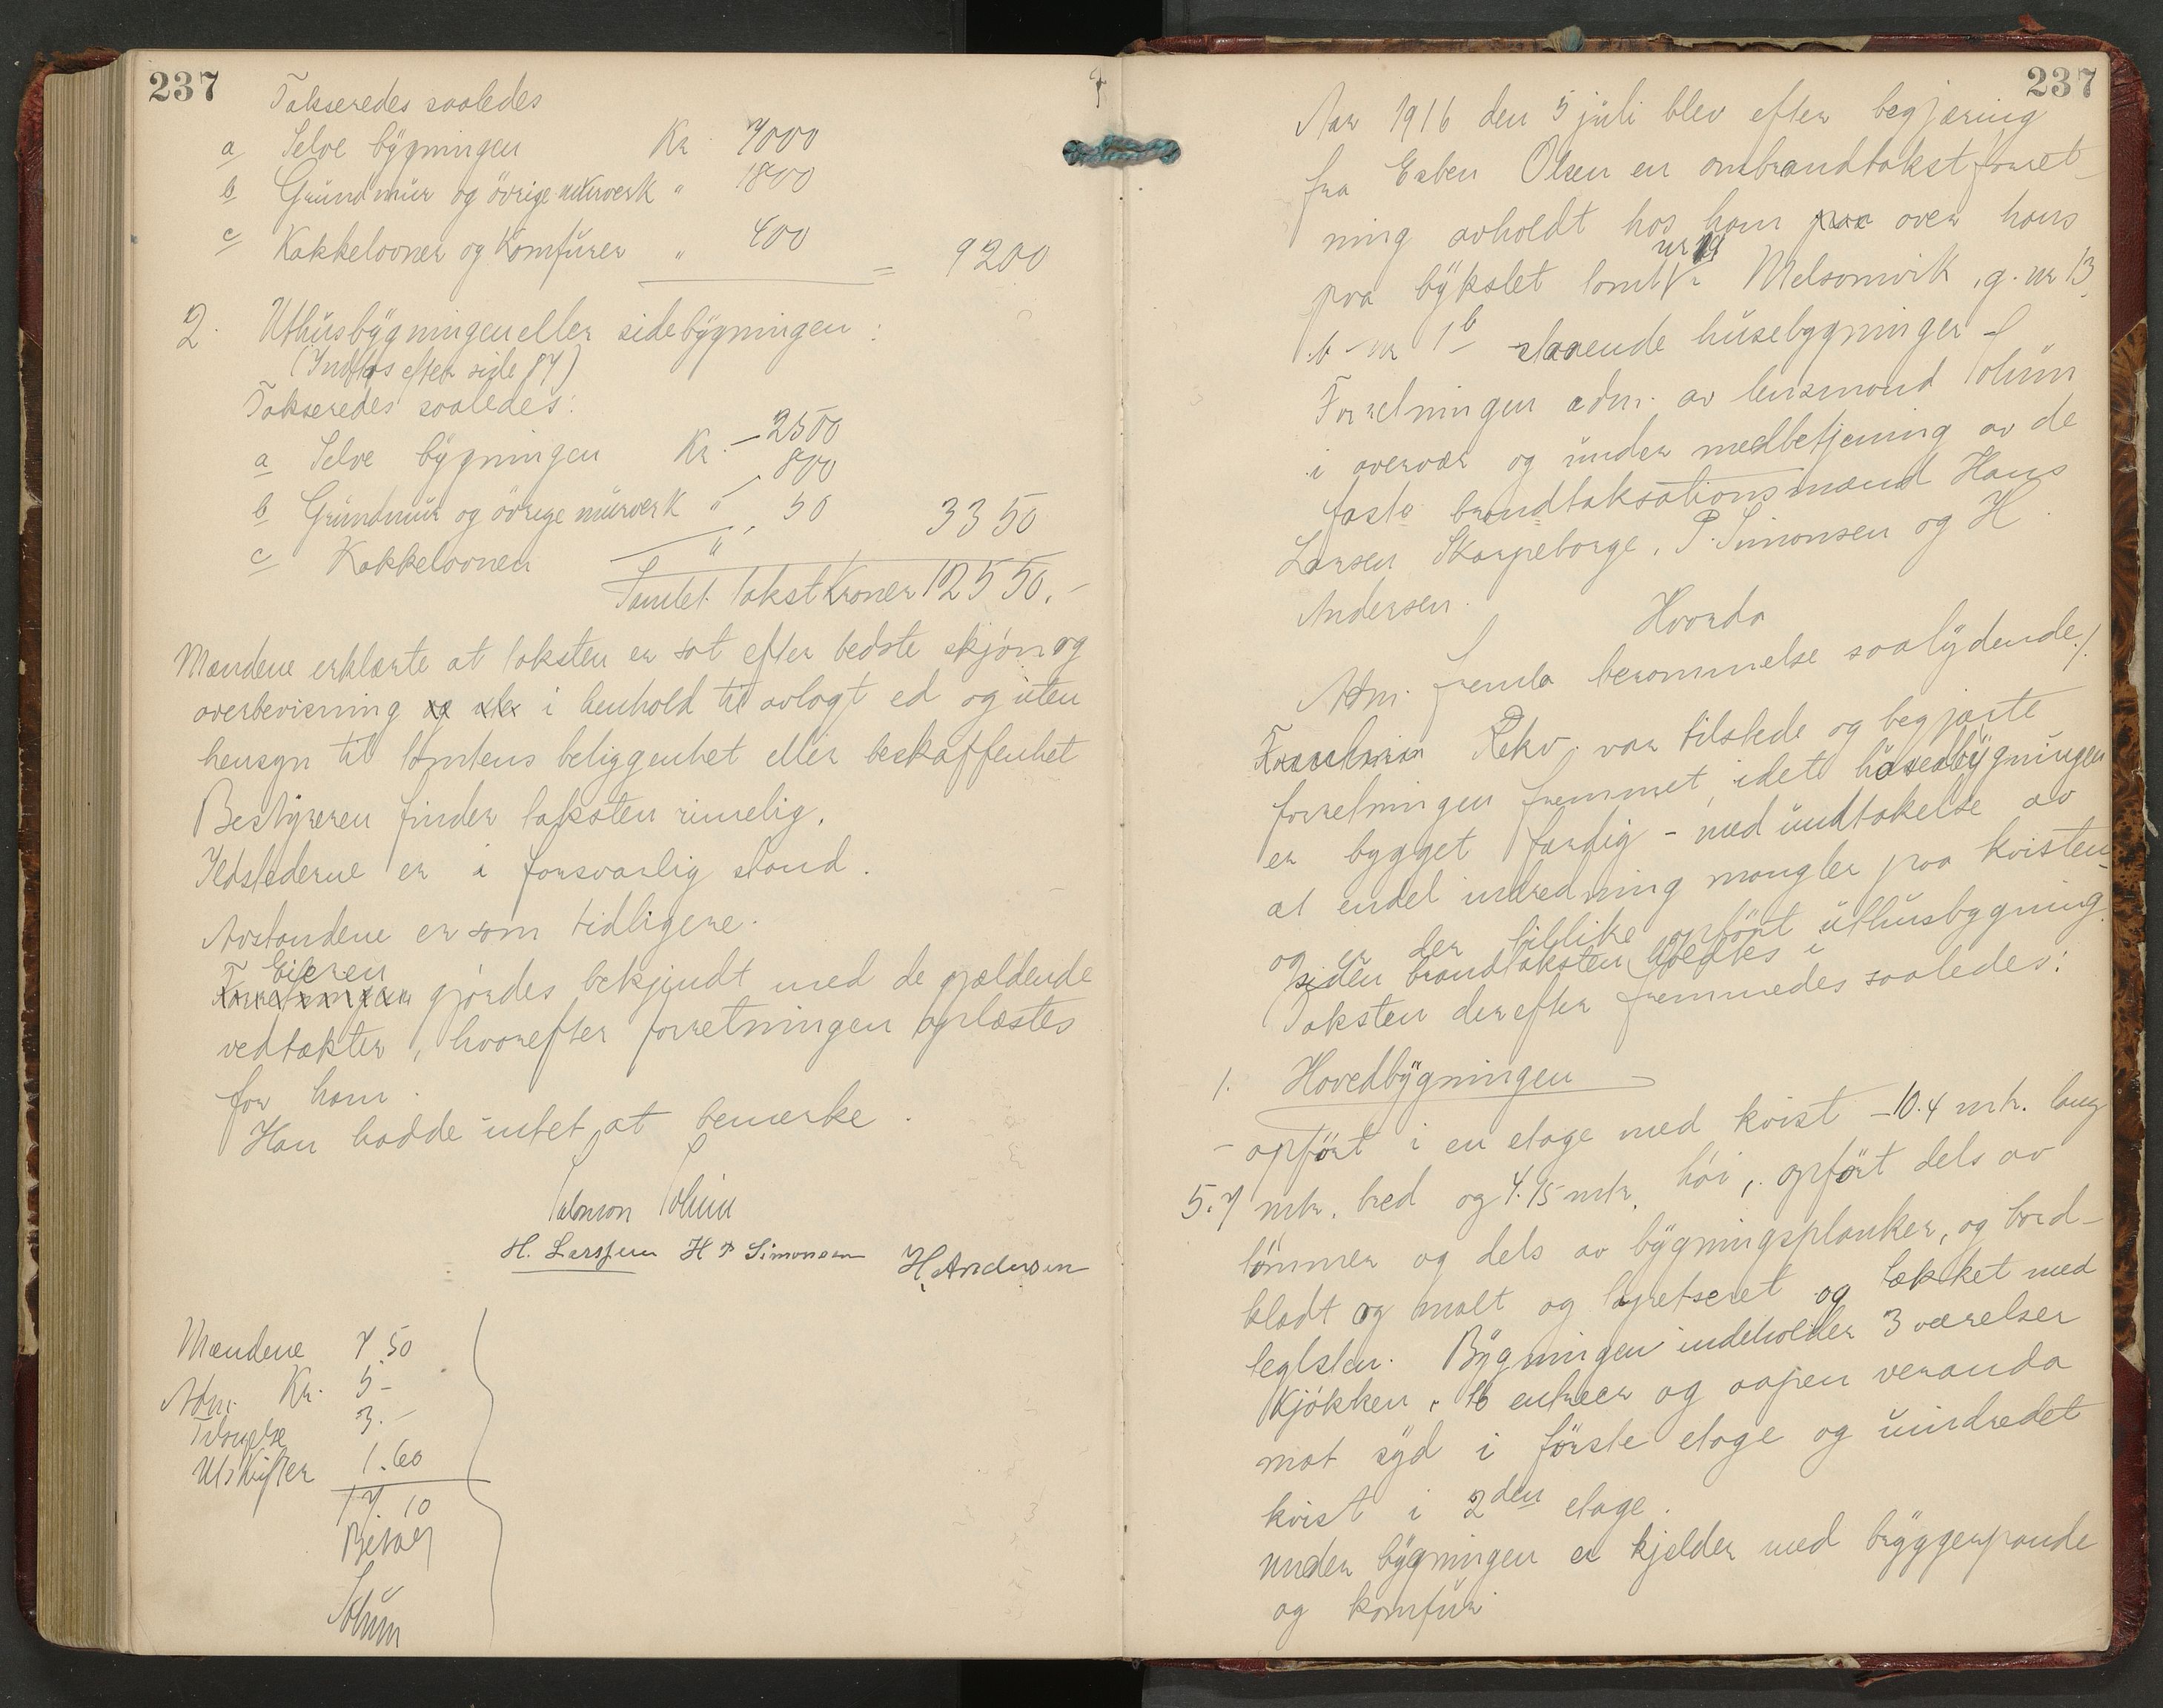 237
Takseredes saaledes
a Selve bygningen Kr. 7000
b Grundmur og övrige murverk " 1800
c Kakkelovner og Komfurer " 400 = 9200
2. Uthusbygningen eller sidebygningen:
(Indtas efter side 87)
Takseredes saaledes:
a Selve bygningen Kr. 2500
b Grundmur og övrige murverk " 800
c Kakkelovnen " 50 3350
Samlet takst Kroner 12550.-
Mændene erklærte at taksten er sat efter bedste skjön og
overbevisning i henhold til avlagt ed og uten
hensyn til tomtens beliggenhet eller beskaffenhet
Bestyreren finder taksten rimelig.
Ildstederne er i forsvarlig stand.
Avstandene er som tidligere.
Eieren
Forretningen gjördes bekjendt med de gjældende
vedtækter, hvorefter forretningen oplæstes
for ham.
Han hadde intet at bemerke.
Salomon Solum
H. Larssen H P Simonsen H. Andersen
Mændene 7 50
Adm. Kr. 5-
3.-
Utskrifter 1.60
17 10
Betalt
Solum
237
Aar 1916 den 5 juli blev efter begjæring
fra Esben Olsen en ombrandtakstforret-
ning avholdt hos ham paa over hans
nr 19
paa bykslet tomt Melsomvik, g. nr 13
b-nr 1b staaende husebygninger
Forretningen adm. av lensmand Solum
i overvær og under medbetjening av de
faste brandtaksationsmænd Hans
Larsen Skarpeborge, P. Simonsen og H.
Andersen.
Hvorda
Adm. fremla berammelse saalydende ./.
Rekv. var tilstede og begjærte
forretningen fremmet, idet husebygningen
er bygget færdig - med undtakelse av
at endel indredning mangler paa kvisten
og er der tillike opfört uthusbygning
siden brandtaksten holdtes i
Taksten derefter fremmedes saaledes:
1. Hovedbygningen
- opfört i en etage med kvist - 10.4 mtr. lang
5.7 mtr. bred og 4.15 mtr. höi, opfört dels av
tömmer og dels av bygningsplanker, og bord-
klædt og malt og tapetseret og tækket med
teglsten. Bygningen indeholder 3 værelser
Kjökken, 16 entreer og aapen veranda
mot syd i förste etage og uindredet
kvist i 2den etage.
Under bygningen er kjelder med bryggerpande
og komfur